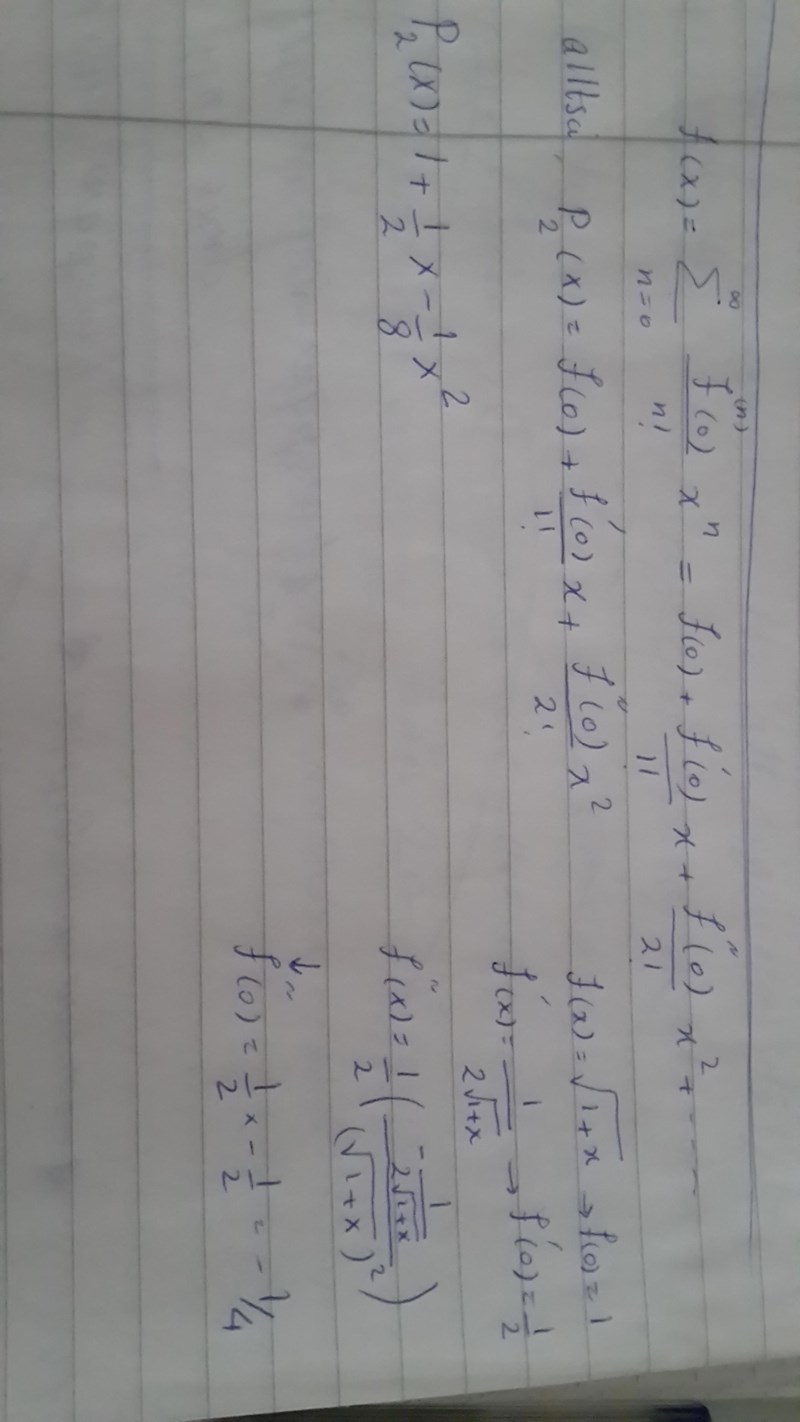 f(x) = ∑_{n=0}^{∞} f^{(n)}(0)/n! x^n = f(0) + f'(0)/1! x + f''(0)/2! x^2 + ----
alltså, P_2(x) = f(0) + f'(0)/1! x + f''(0)/2! x^2
P_2(x) = 1 + 1/2 x - 1/8 x^2
f(x) = √(1+x) → f(0) = 1
f'(x) = 1/(2√(1+x)) → f'(0) = 1/2
f''(x) = 1/2 ( (-1/(2√(1+x)))/(√(1+x))^2 )
↓
f''(0) = 1/2 x - 1/2 = - 1/4